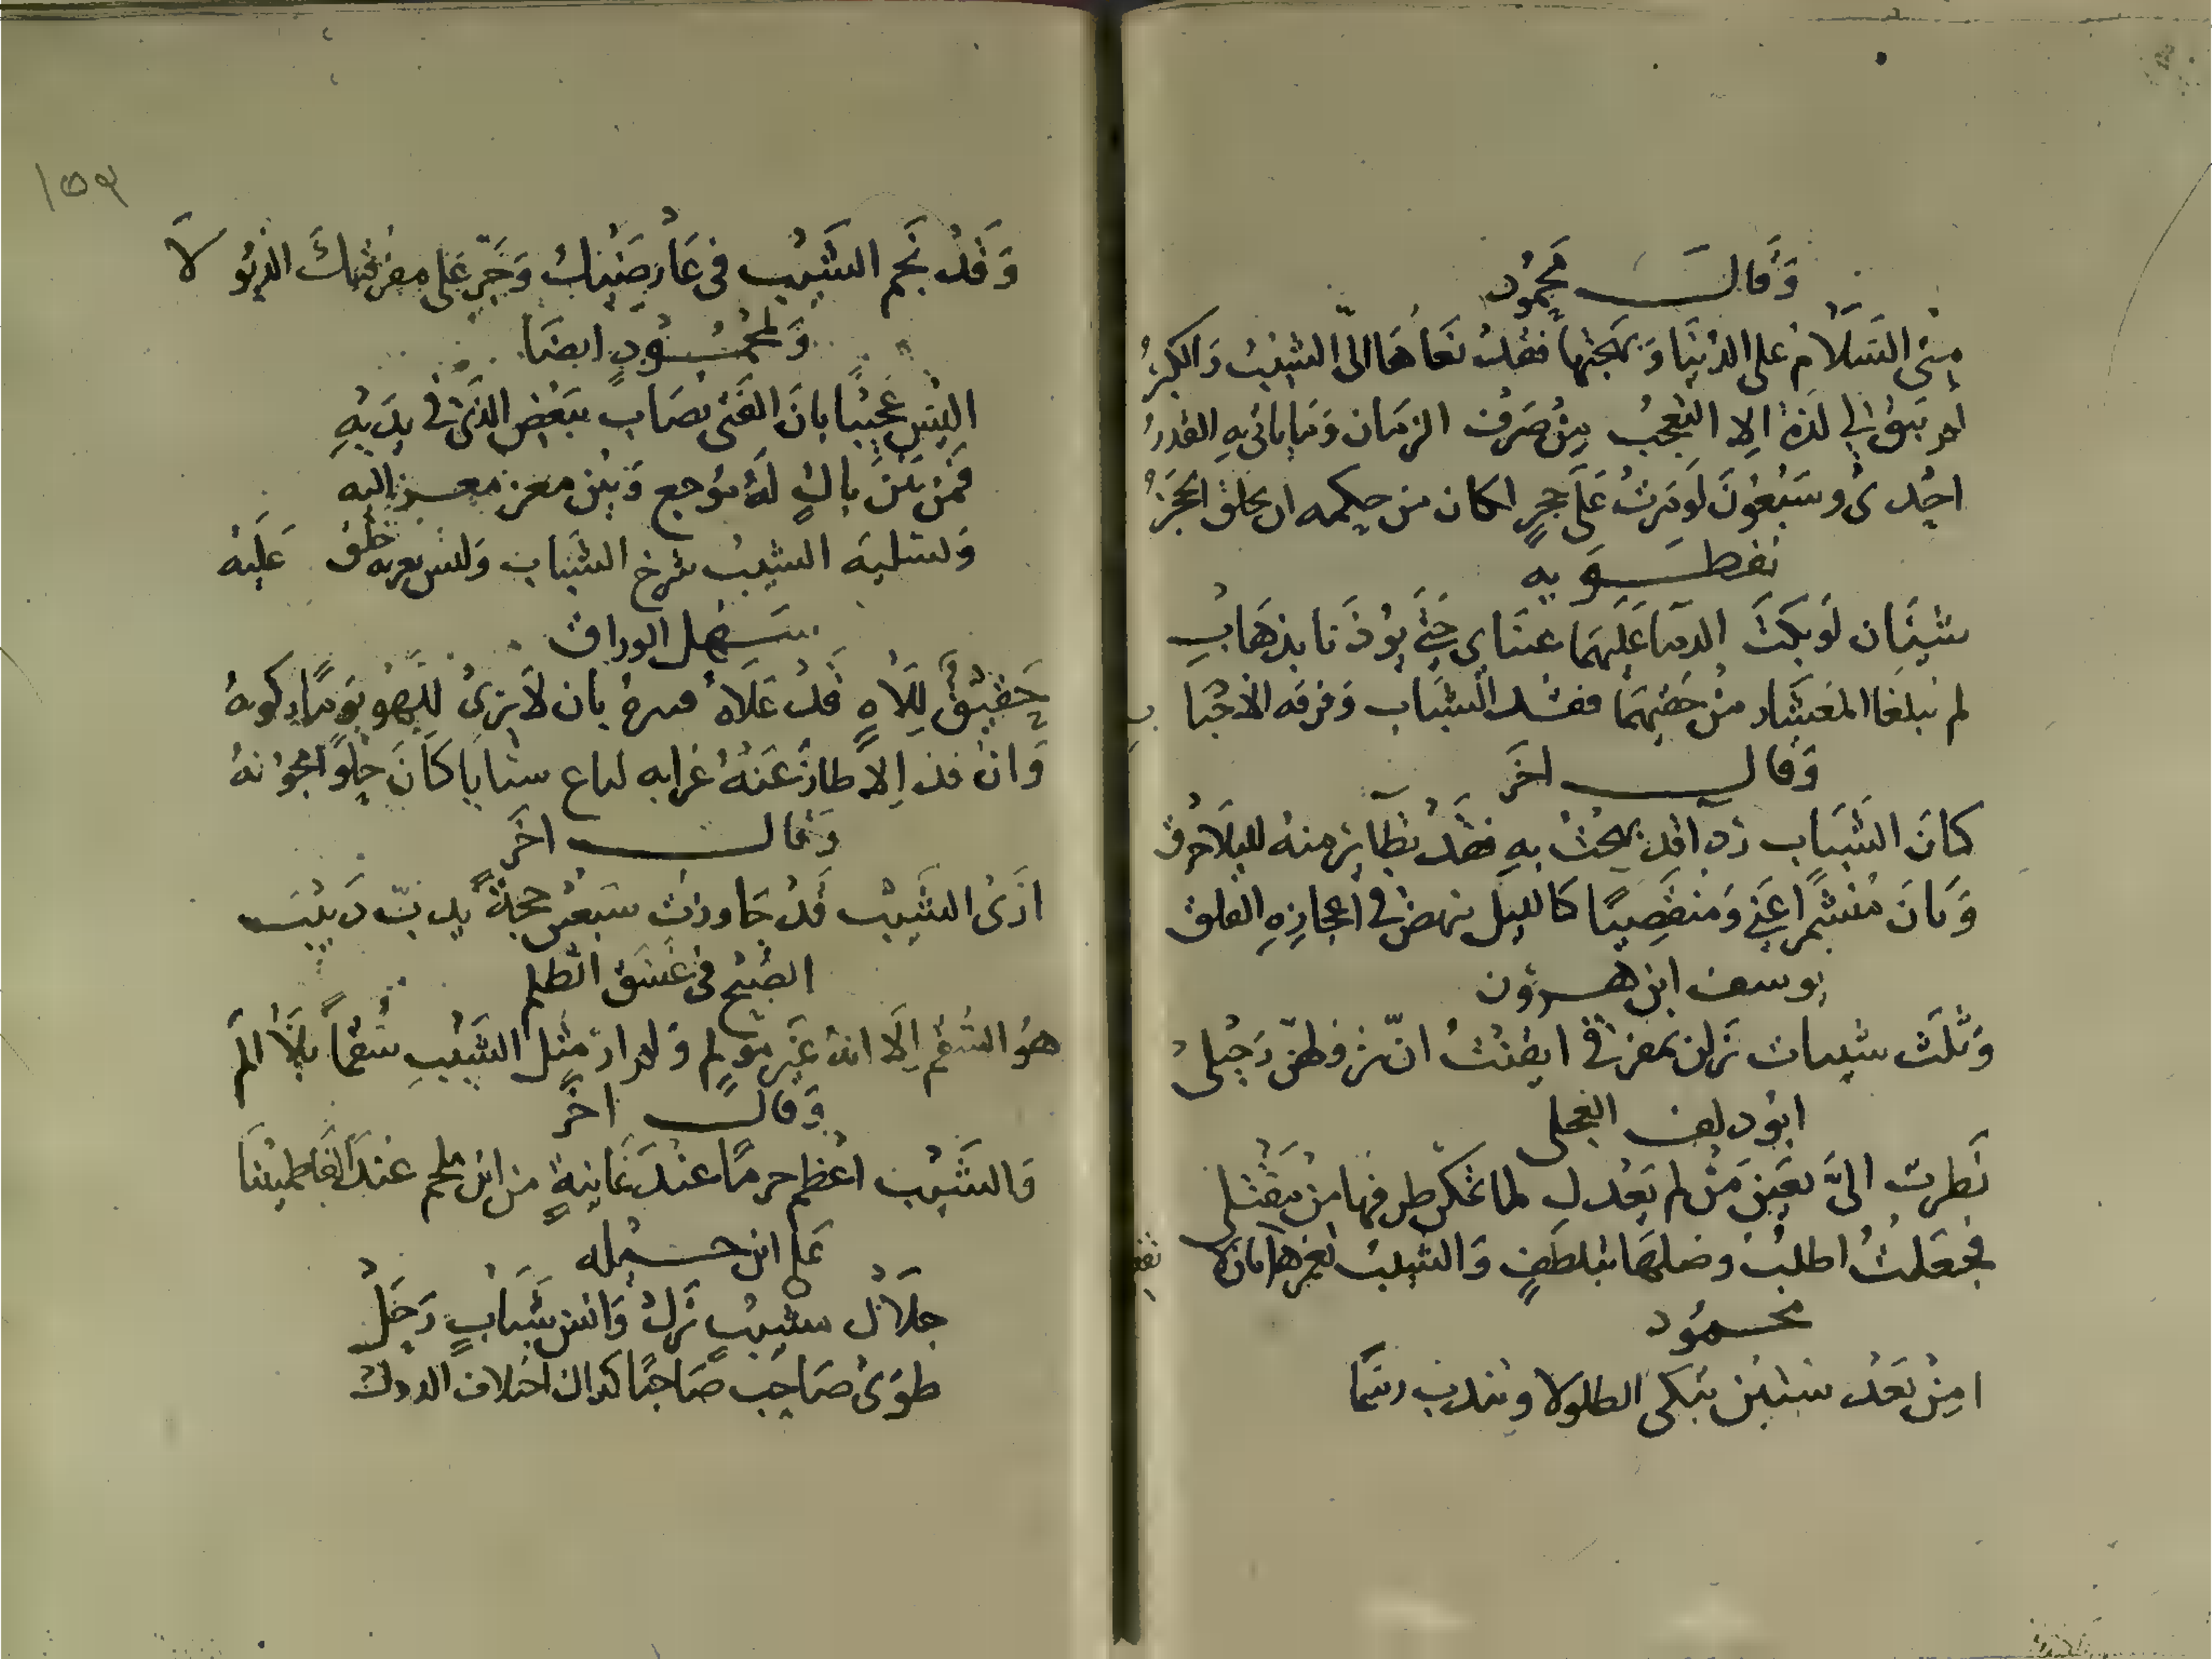 وَقَال محمُود
مِني السَلَامُ على الدنيَا وَبهجتها فقلتُ نَعَاهَا الىّ الشيبُ وَالكبرُ
لم يَبق لي لَذة الا التعجبُ مِنْ صَرْف الزمَان وَمَا يَاتي بهِ القدرُ
احْدى وسَبعُونَ لَو مَرتْ عَلَى حجرٍ لكان من حكمه ان يخلق الحَجَرُ
نفطَويه
شيئَان لَو بكَتْ الدمَا عَليهمَا عينَاي حَتّى يُوذَنا بذهَابِ
لم يَبلغَا المعشَار مِنْ حَقيهمَا فقْد الشبَاب وَفرقَه الاحْبَاب
وَقال اخَر
كانَ الشبَاب ردآ قد بهجتْ بهِ فقَدْ تطَايَر منهُ للبلَا خرق
وَبَانَ مُنْشمرا عَني وَمنقَصِيًا كَالليل ينهض في اعجازِهِ الفلق
يوسف ابن هرون
وَثلَث شيبات نَزلن بمفرقي ايقنْتُ انّ نزولهنّ رَحيلى
ابُو دلف العجلى
نَظرت الىَّ بعَين مَنْ لم يَعْدل لما تمكن طرفهَا مِنْ مَقْتلى
فجعَلتُ اطلبُ وصْلهَا بتلطفٍ وَالشيبُ يغمزهَا بَان لا تفعلِ
محمُود
امِنْ بَعْد ستين تبكى الطلولا وتندب رسمًا
١٥٩
وَقَدْ نجَم الشَيْب في عَارِضَيْك وَجَرّ عَلى مفرقيكَ الذيُولَا
وَلمحمُودٍ ايضَا
اليْسَ عَجيبًا بانَ الفَتى يصَاب ببَعْض الذى في يدَيْهِ
فَمن بَيْن باكٍ لَهُ موُجع وَبَيْن معز مغــز اليه
وَيسلبه الشيبُ شرخ الشَباب وَليس يعزيه خلق عَليْه
سَهل الوراق
حَقيْقٌ لِلَاهٍ قَدْ عَلَاهُ بان لَا يَرىْ للهوِ يَومًا ركونهُ
وَان الا طارَ عَنْهُ غرابه شبابا كَانَ حلْوًا مجُونهُ
وَقال اخَر
ارَى الشَيْب قَدْ جَاوزت سَبْعين حجةً يدبّ دَبيْبَ
الصُبْح في غسَق الظلم
هوُ السُقم اِلَا انهُ غَيْر مؤلم وَلم ار مثل الشَيْبِ سُقمًا بلَا المْ
وَقال اخَر
وَالشَيْب اعْظم جرمًا عنْدَ غَانيَةٍ من ابن ملجم عنْدَ الفَاطميْنَا
عَلى ابن جَبله
جلَال مشيبٍ نَزلْ وَانس شَبَابٍ رَحَلْ
طوَىْ صَاحبٌ صَاحبًا كذاك اختلاف الدول